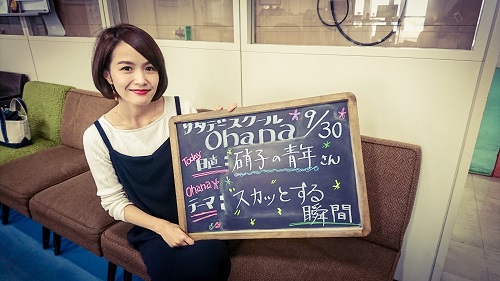 サタデースクール
Ohana 9/30
Today 日直: 硝子の青年さん
Ohana テーマ: "スカッとする
瞬間